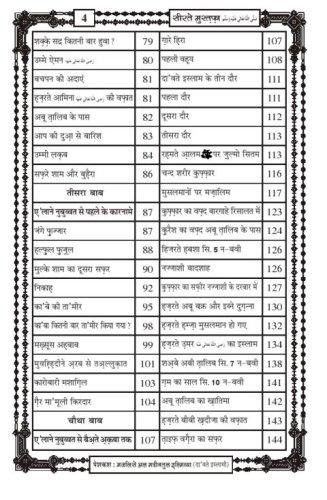 4 सीरते मुस्तफ़ा صلى الله عليه وسلم
शक़्क़े सद्र कितनी बार हुवा ? 79
उम्मे ऐमन رضى الله عنها 80
बचपन की अदाएं 81
हज़रते आमिना رضى الله عنها की वफ़ात 81
अबू तालिब के पास 82
आप की दुआ से बारिश 83
उम्मी लक़ब 84
सफ़रे शाम और बुहैरा 86
तीसरा बाब
ए'लाने नुबुव्वत से पहले के कारनामे 87
जंगे फ़ुज्जार 87
हल्फ़ुल फ़ुज़ूल 88
मुल्के शाम का दूसरा सफ़र 90
निकाह 92
का'बे की ता'मीर 95
का'बा कितनी बार ता'मीर किया गया ? 98
मख़्सूस अहबाब 99
मुवह्हिदीने अरब से तअल्लुकात 101
कारोबारी मशाग़िल 103
ग़ैर मा'मूली किरदार 104
चौथा बाब
ए'लाने नुबुव्वत से बैअते अक़बा तक 107
ग़ारे हिरा 107
पहली वह्य 108
दा'वते इस्लाम के तीन दौर 111
पहला दौर 111
दूसरा दौर 112
तीसरा दौर 113
रहमते आलम पर ज़ुल्मो सितम 113
चन्द शरीर कुफ़्फ़ार 116
मुसलमानों पर मज़ालिम 117
कुफ़्फ़ार का वफ़्द बारगाहे रिसालत में 123
क़ुरैश का वफ़्द अबू तालिब के पास 124
हिजरते हबशा सि. 5 न-बवी 126
नज्जाशी बादशाह 126
कुफ़्फ़ार का सफ़ीर नज्जाशी के दरबार में 127
हज़रते अबू बक्र और इब्ने दुग़न्ना 130
हज़रते हम्ज़ा मुसलमान हो गए 132
हज़रते उमर رضى الله عنه का इस्लाम 134
शअ्बे अबी तालिब सि. 7 न-बवी 138
ग़म का साल सि. 10 न-बवी 141
अबू तालिब का ख़ातिमा 142
हज़रते बीबी ख़दीजा की वफ़ात 143
ताइफ़ वग़ैरा का सफ़र 144
पेशकश : मजलिसे अल मदीनतुल इल्मिय्या (दा'वते इस्लामी)